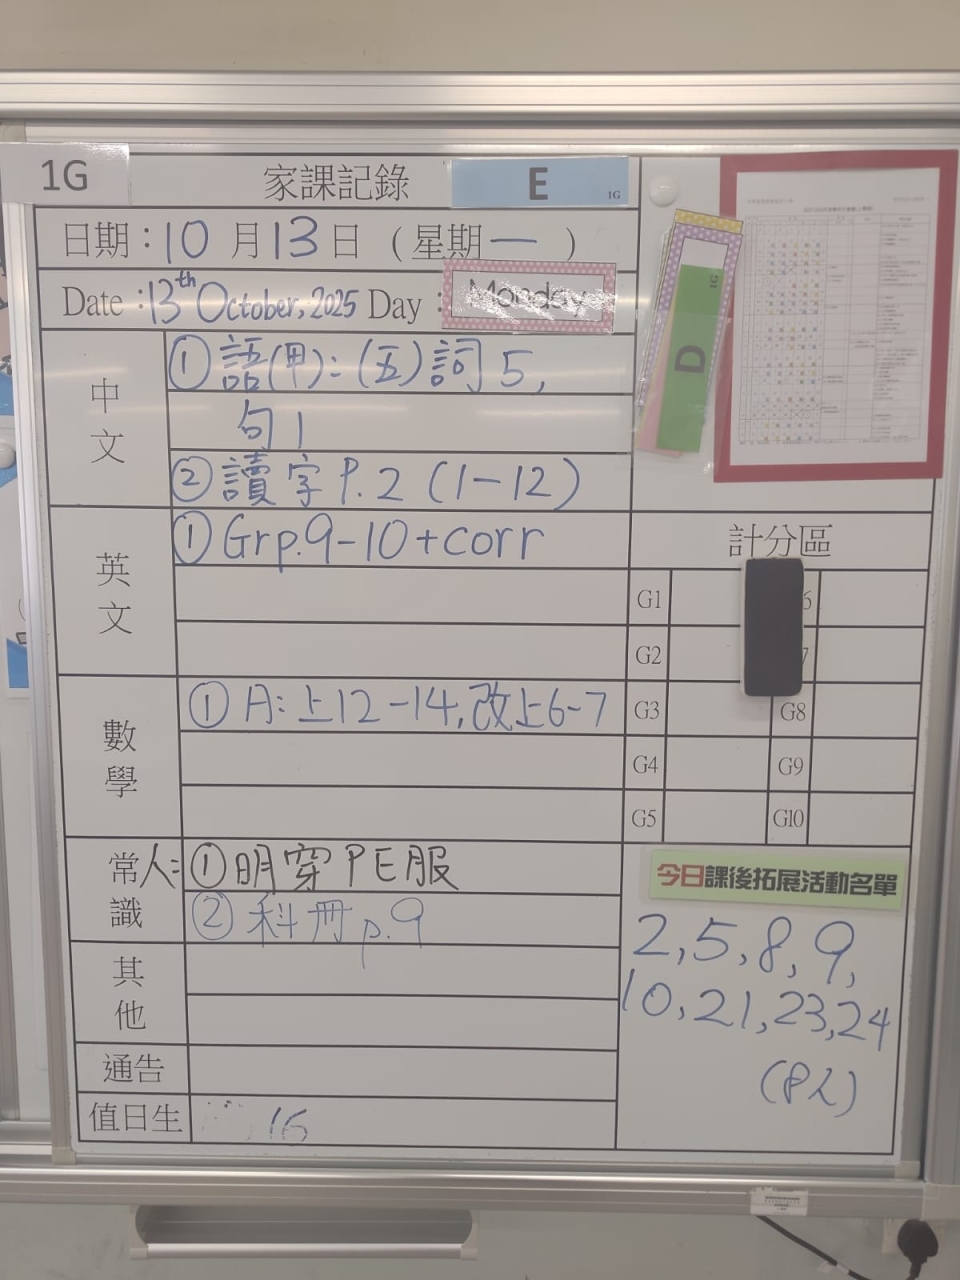 1G
家課記錄
E
1G
日期：10月13日（星期一）
Date：13th October, 2025 Day：Monday
中文
① 語(甲)：(五)詞5，
句1
② 讀字 P.2 (1-12)
英文
① Grp.9-10+corr
數學
① A：上12-14，改上6-7
常識
人：① 明穿PE服
② 科冊 p.9
其他
通告
值日生
16
D
1G
計分區
G1
G2
G3
G8
G4
G9
G5
G10
今日課後拓展活動名單
2, 5, 8, 9,
10, 21, 23, 24
(8人)